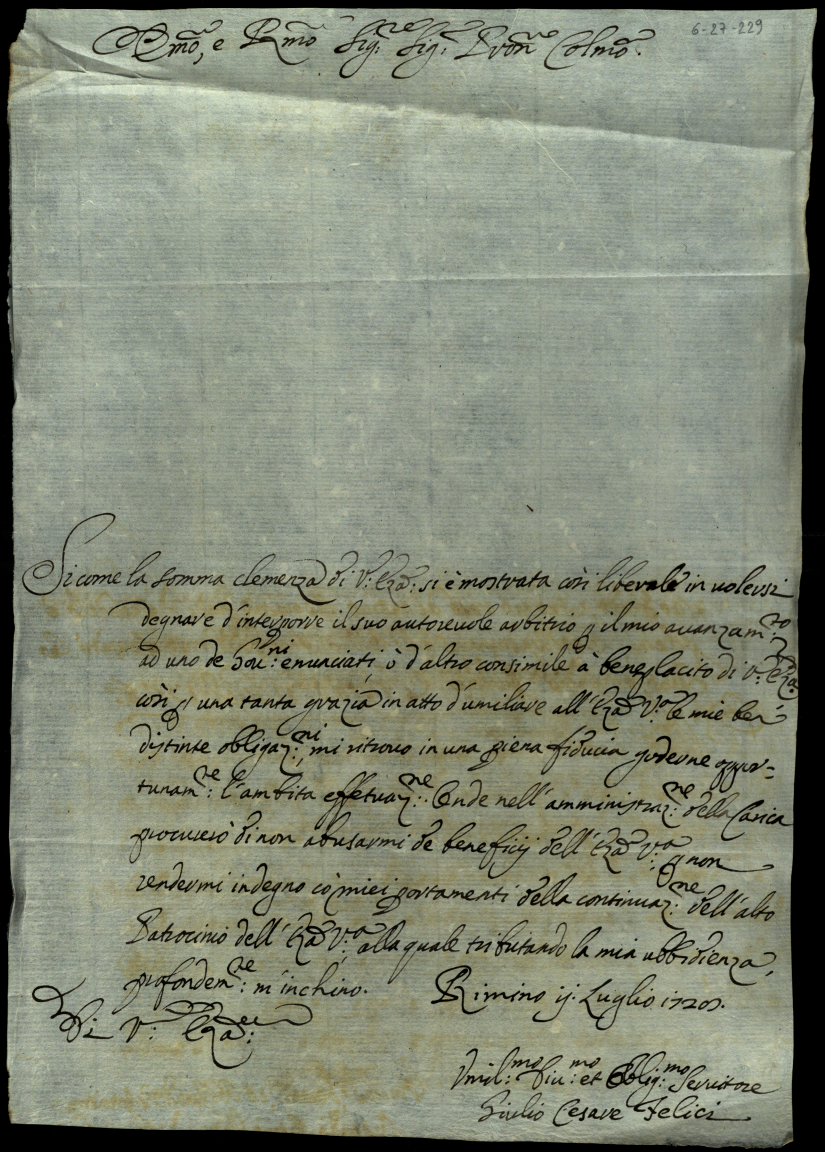 6-27-229
Emo, e Rmo Sig:re Sig:r Pron:ne Colmo.
Sicome la somma clemenza di V: Eza: si è mostrata così liberale in volersi
degnare d'interporre il suo autoreuole arbitrio p il mio auanzam:to
ad uno de Gou:ni enunciati, ò d'altro consimile à beneplacito di V: Eza
così p una tanta grazia in atto d'umiliare all'Eza V:a le mie ben
distinte obligaz:ni, mi ritrouo in una piena fiducia goderne oppor=
tunam:te l'ambita effetuaz:ne. Onde nell'amministraz:ne della Carica
procurerò di non abusarmi de beneficij dell'Eza V:a, p non
rendermi indegno cò miei portamenti della continuaz:ne dell'alto
Patrocinio dell'Eza V:a, alla quale tributando la mia ubbidienza,
profondem:te m'inchino. Rimino ij: Luglio
Di V: Eza:
Vmil:mo Diu:mo et Oblig:mo Seruitore
Giulio Cesare Felici